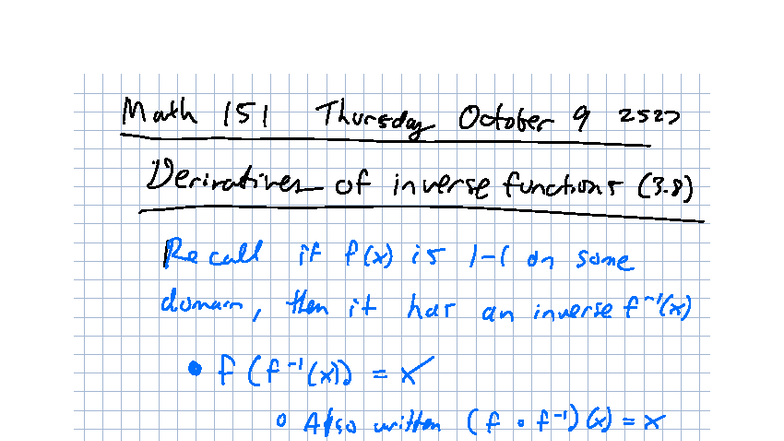 Math 151 Thursday October 9 2527
Derivatives of inverse functions (3.8)
Recall if f(x) is 1-1 on some
domain, then it has an inverse f⁻¹(x)
• f(f⁻¹(x)) = x
○ Also written (f ∘ f⁻¹)(x) = x